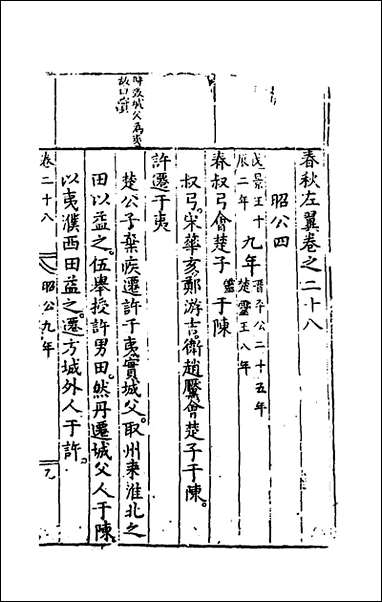 春秋左翼卷之二十八
昭公四
戊景王十
辰二年
九年
晉平公二十五年
楚靈王八年
春叔弓會楚子
虔
于陳
叔弓宋華亥鄭游吉衛趙黶會楚子于陳
許遷于夷
楚公子棄疾遷許于夷實城父取州來淮北之
田以益之伍舉授許男田然丹遷城父人于陳
以夷濮西田益之遷方城外人于許
卷二十八
昭公九年
時改城父為夷
故曰實